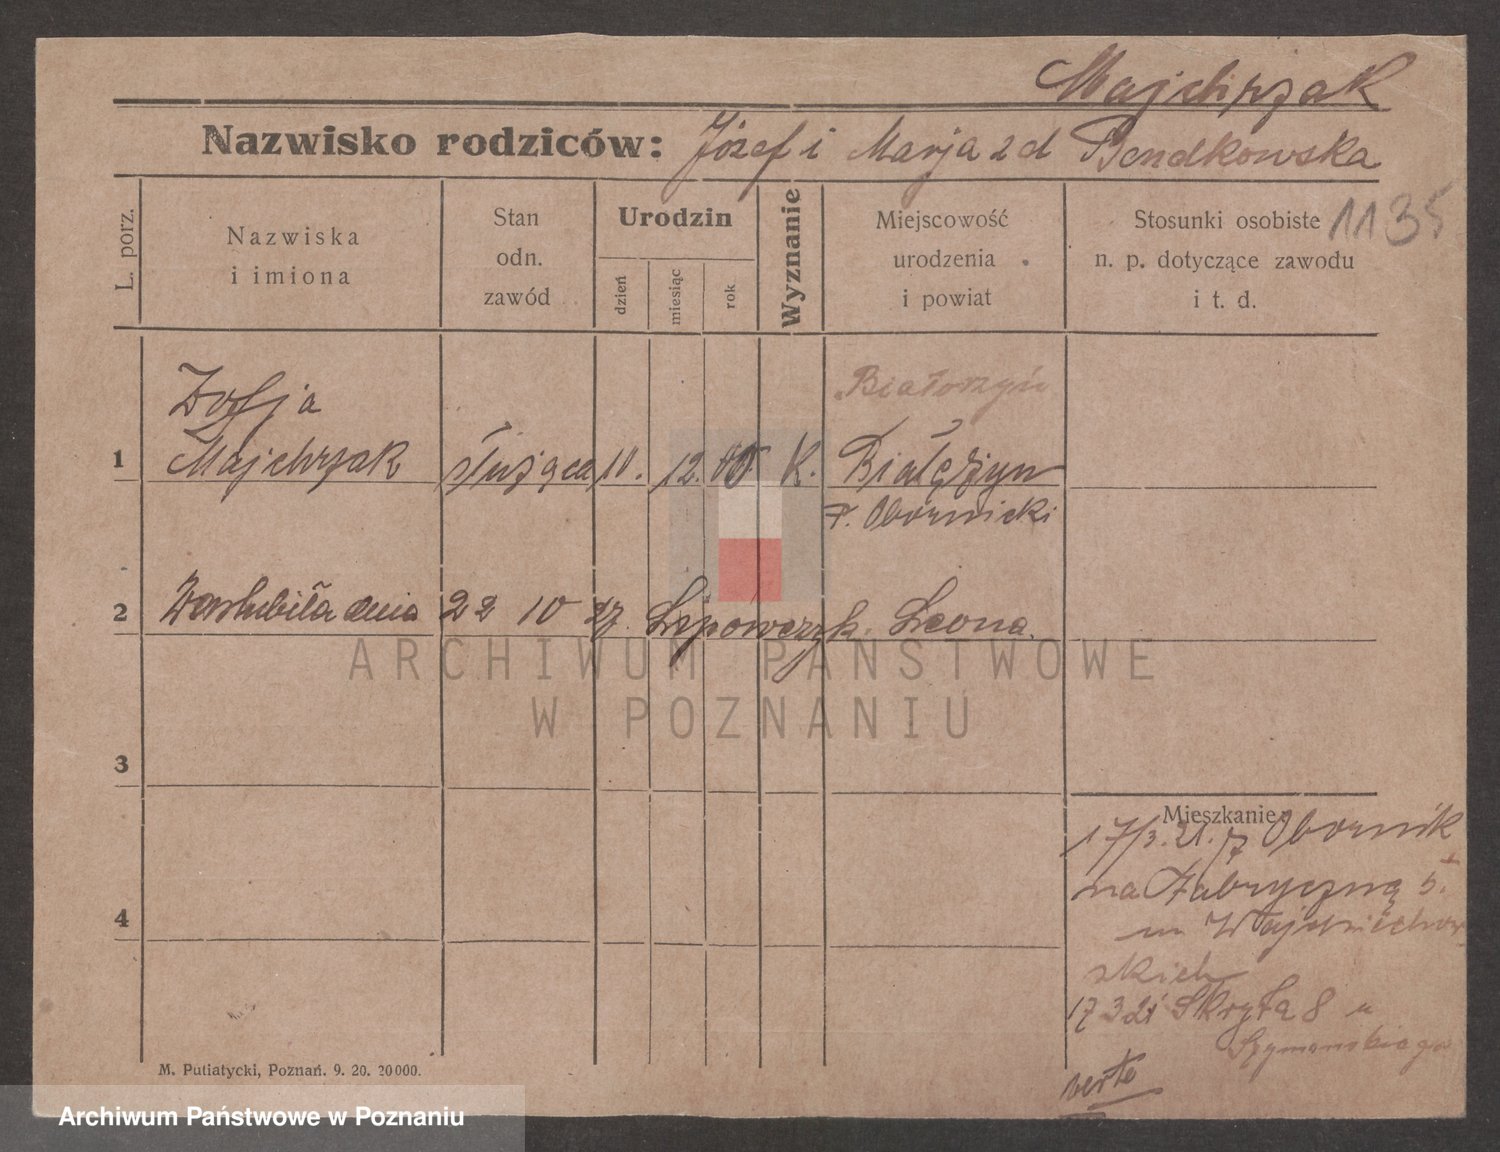 Majchrzak
Nazwisko rodziców: Józef i Marja zd Bendkowska
1135
L. porz.
Nazwiska
i imiona
Stan
odn.
zawód
Urodzin
dzień
miesiąc
rok
Wyznanie
Miejscowość
urodzenia
i powiat
Stosunki osobiste
n. p. dotyczące zawodu
i t. d.
Białorzyń
Zofja
1 Majchrzak służąca 10. 12. K. Białężyn
p. Obornicki
2 Zaślubiła dnia 22 10 27. Lipowczyk Leona.
ARCHIWUM PAŃSTWOWE
W POZNANIU
3
Mieszkanie:
17/3.21. z Obornik
na Fabryczną 5.
u Wojciechow
skich
17 3 21 Skryta 8 u
Szymańskiego
4
verte
M. Putiatycki, Poznań. 9. 20. 20000.
Archiwum Państwowe w Poznaniu